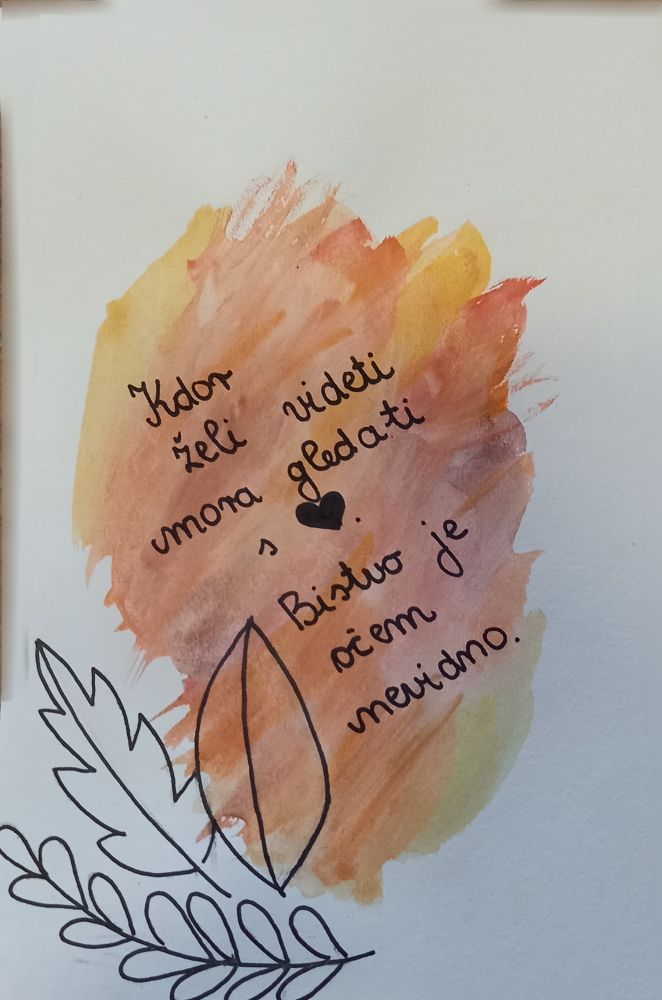 Kdor
želi videti
mora gledati
s ♥.
Bistvo je
očem
nevidno.